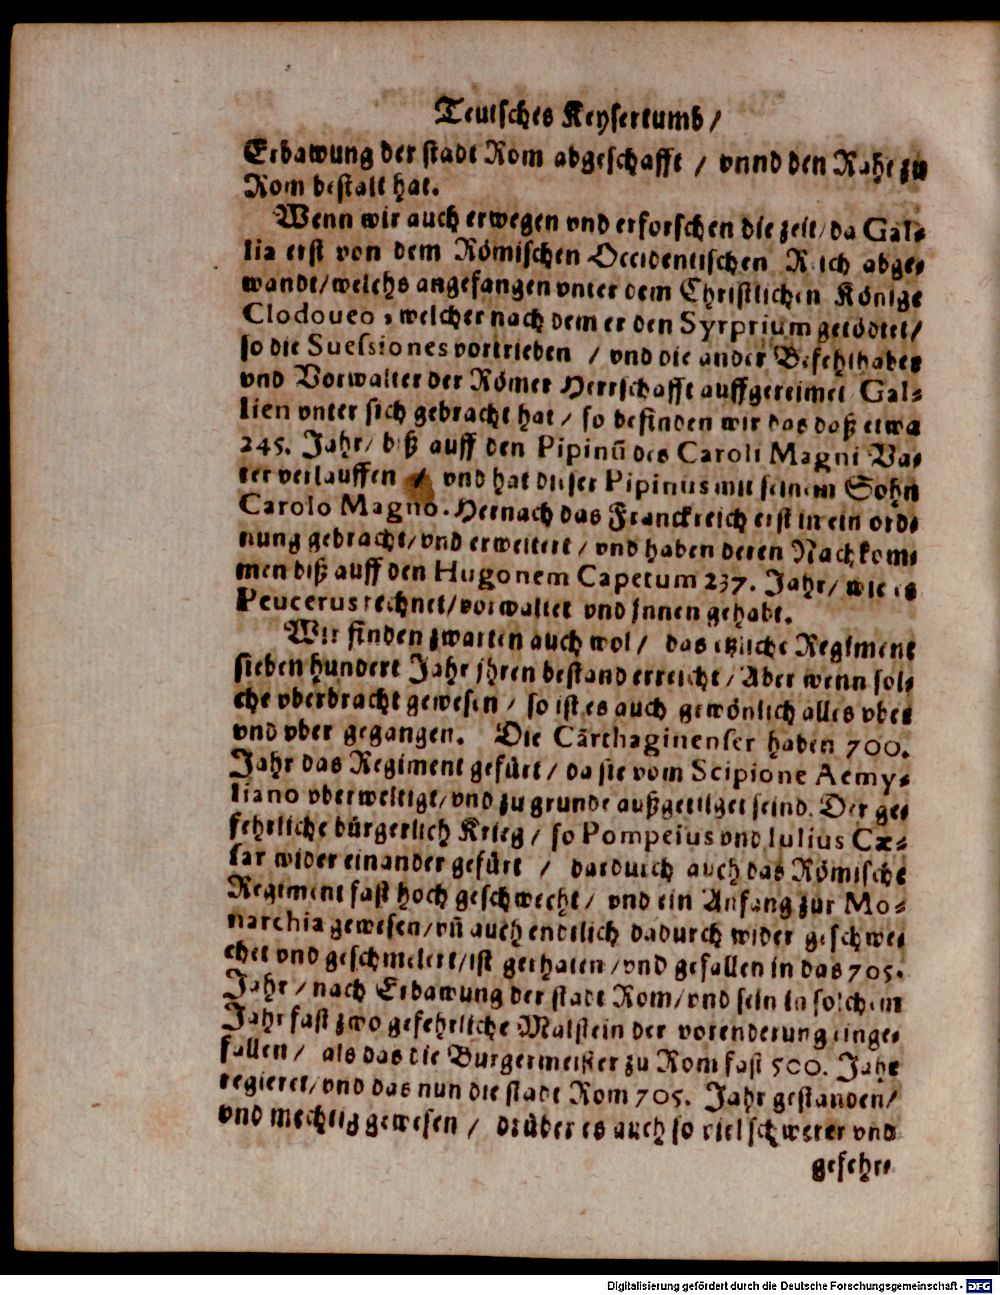 Teutsches Keysertumb /
Erbawung der stadt Rom abgeschafft / vnnd den Raht zu
Rom bestalt hat.
Wenn wir auch erwegen vnd erforschen die zeit / da Gal⸗
lia erst von dem Römischen Occidentischen Reich abge⸗
wandt / welchs angefangen vnter dem Christlichen Könige
Clodoueo , welcher nach dem er den Syrprium getödtet /
so die Suessiones vortrieben / vnd die ander Befehlhaber
vnd Vorwalter der Römer Herrschafft auffgereimet Gal⸗
lien vnter sich gebracht hat / so befinden wir das daß etwa
245. Jahr / biß auff den Pipinū des Caroli Magni Va⸗
ter verlauffen / vnd hat dieser Pipinus mit seinem Sohn
Carolo Magno. Hernach das Franckreich erst in ein ord⸗
nung gebracht / vnd erweitert / vnd haben deren Nachkom⸗
men biß auff den Hugonem Capetum 237. Jahr / wie es
Peucerus rechnet / vorwaltet vnd jnnen gehabt.
Wir finden zwarten auch wol / das etzliche Regiment
sieben hundert Jahr jhren bestand erreicht / Aber wenn sol⸗
che vberbracht gewesen / so ist es auch gewönlich alles vber
vnd vber gegangen. Die Cārthaginenser haben 700.
Jahr das Regiment gefürt / da sie vom Scipione Aemy⸗
liano vberweltigt / vnd zu grunde außgetilget seind. Der ge⸗
fehrliche bürgerlich Krieg / so Pompeius vnd Iulius Cæ⸗
sar wider einander gefürt / dardurch auch das Römische
Regiment fast hoch geschwecht / vnd ein Anfang zur Mo⸗
narchia gewesen / vñ auch endtlich dadurch wider geschwe⸗
chet vnd geschmelert / ist gerhaten / vnd gefallen in das 705.
Jahr / nach Erbawung der stadt Rom / vnd sein in solchem
Jahr fast zwo gefehrliche Malstein der vorenderung einge⸗
fallen / als das die Burgermeister zu Rom fast 500. Jahr
regieret / vnd das nun die stadt Rom 705. Jahr gestanden /
vnd mechtig gewesen / drüber es auch so viel schwerer vnd
gefehr⸗
Digitalisierung gefördert durch die Deutsche Forschungsgemeinschaft - DFG